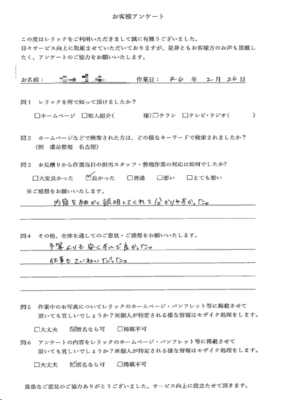 お客様アンケート
この度はレリックをご利用いただきまして誠に有難うございました。
日々サービス向上に取組ませていただいておりますが、是非ともお客様方のお声も頂戴したく、アンケートのご協力をお願いいたします。
お名前: 作業日: R6年2月26日
問1 レリックを何で知って頂けましたか?
□ホームページ □知人紹介( 様) □チラシ □テレビ・ラジオ( )
問2 ホームページなどで検索された方は、どの様なキーワードで検索されましたか?
(例 遺品整理 名古屋)
問3 お見積りから作業当日の担当スタッフ・整理作業の対応は如何でしたか?
□大変良かった ☑良かった □普通 □悪い □とても悪い
※ご感想をお願いいたします。
内容を細かく説明してくれて分かりやすかった。
問4 その他、全体を通してのご意見・ご感想をお願いいたします。
予算よりも安くすんで良かった。
仕事もていねいだった。
問5 作業中のお写真についてレリックのホームページ・パンフレット等に掲載させて
頂いても宜しいでしょうか?※個人が特定される様な情報はモザイク処理をします。
□大丈夫 ☑匿名なら可 □掲載不可
問6 アンケートの内容をレリックのホームページ・パンフレット等に掲載させて
頂いても宜しいでしょうか?※個人が特定される様な情報はモザイク処理をします。
□大丈夫 ☑匿名なら可 □掲載不可
貴重なご意見のご協力ありがとうございました。サービス向上に役立たせて頂きます。